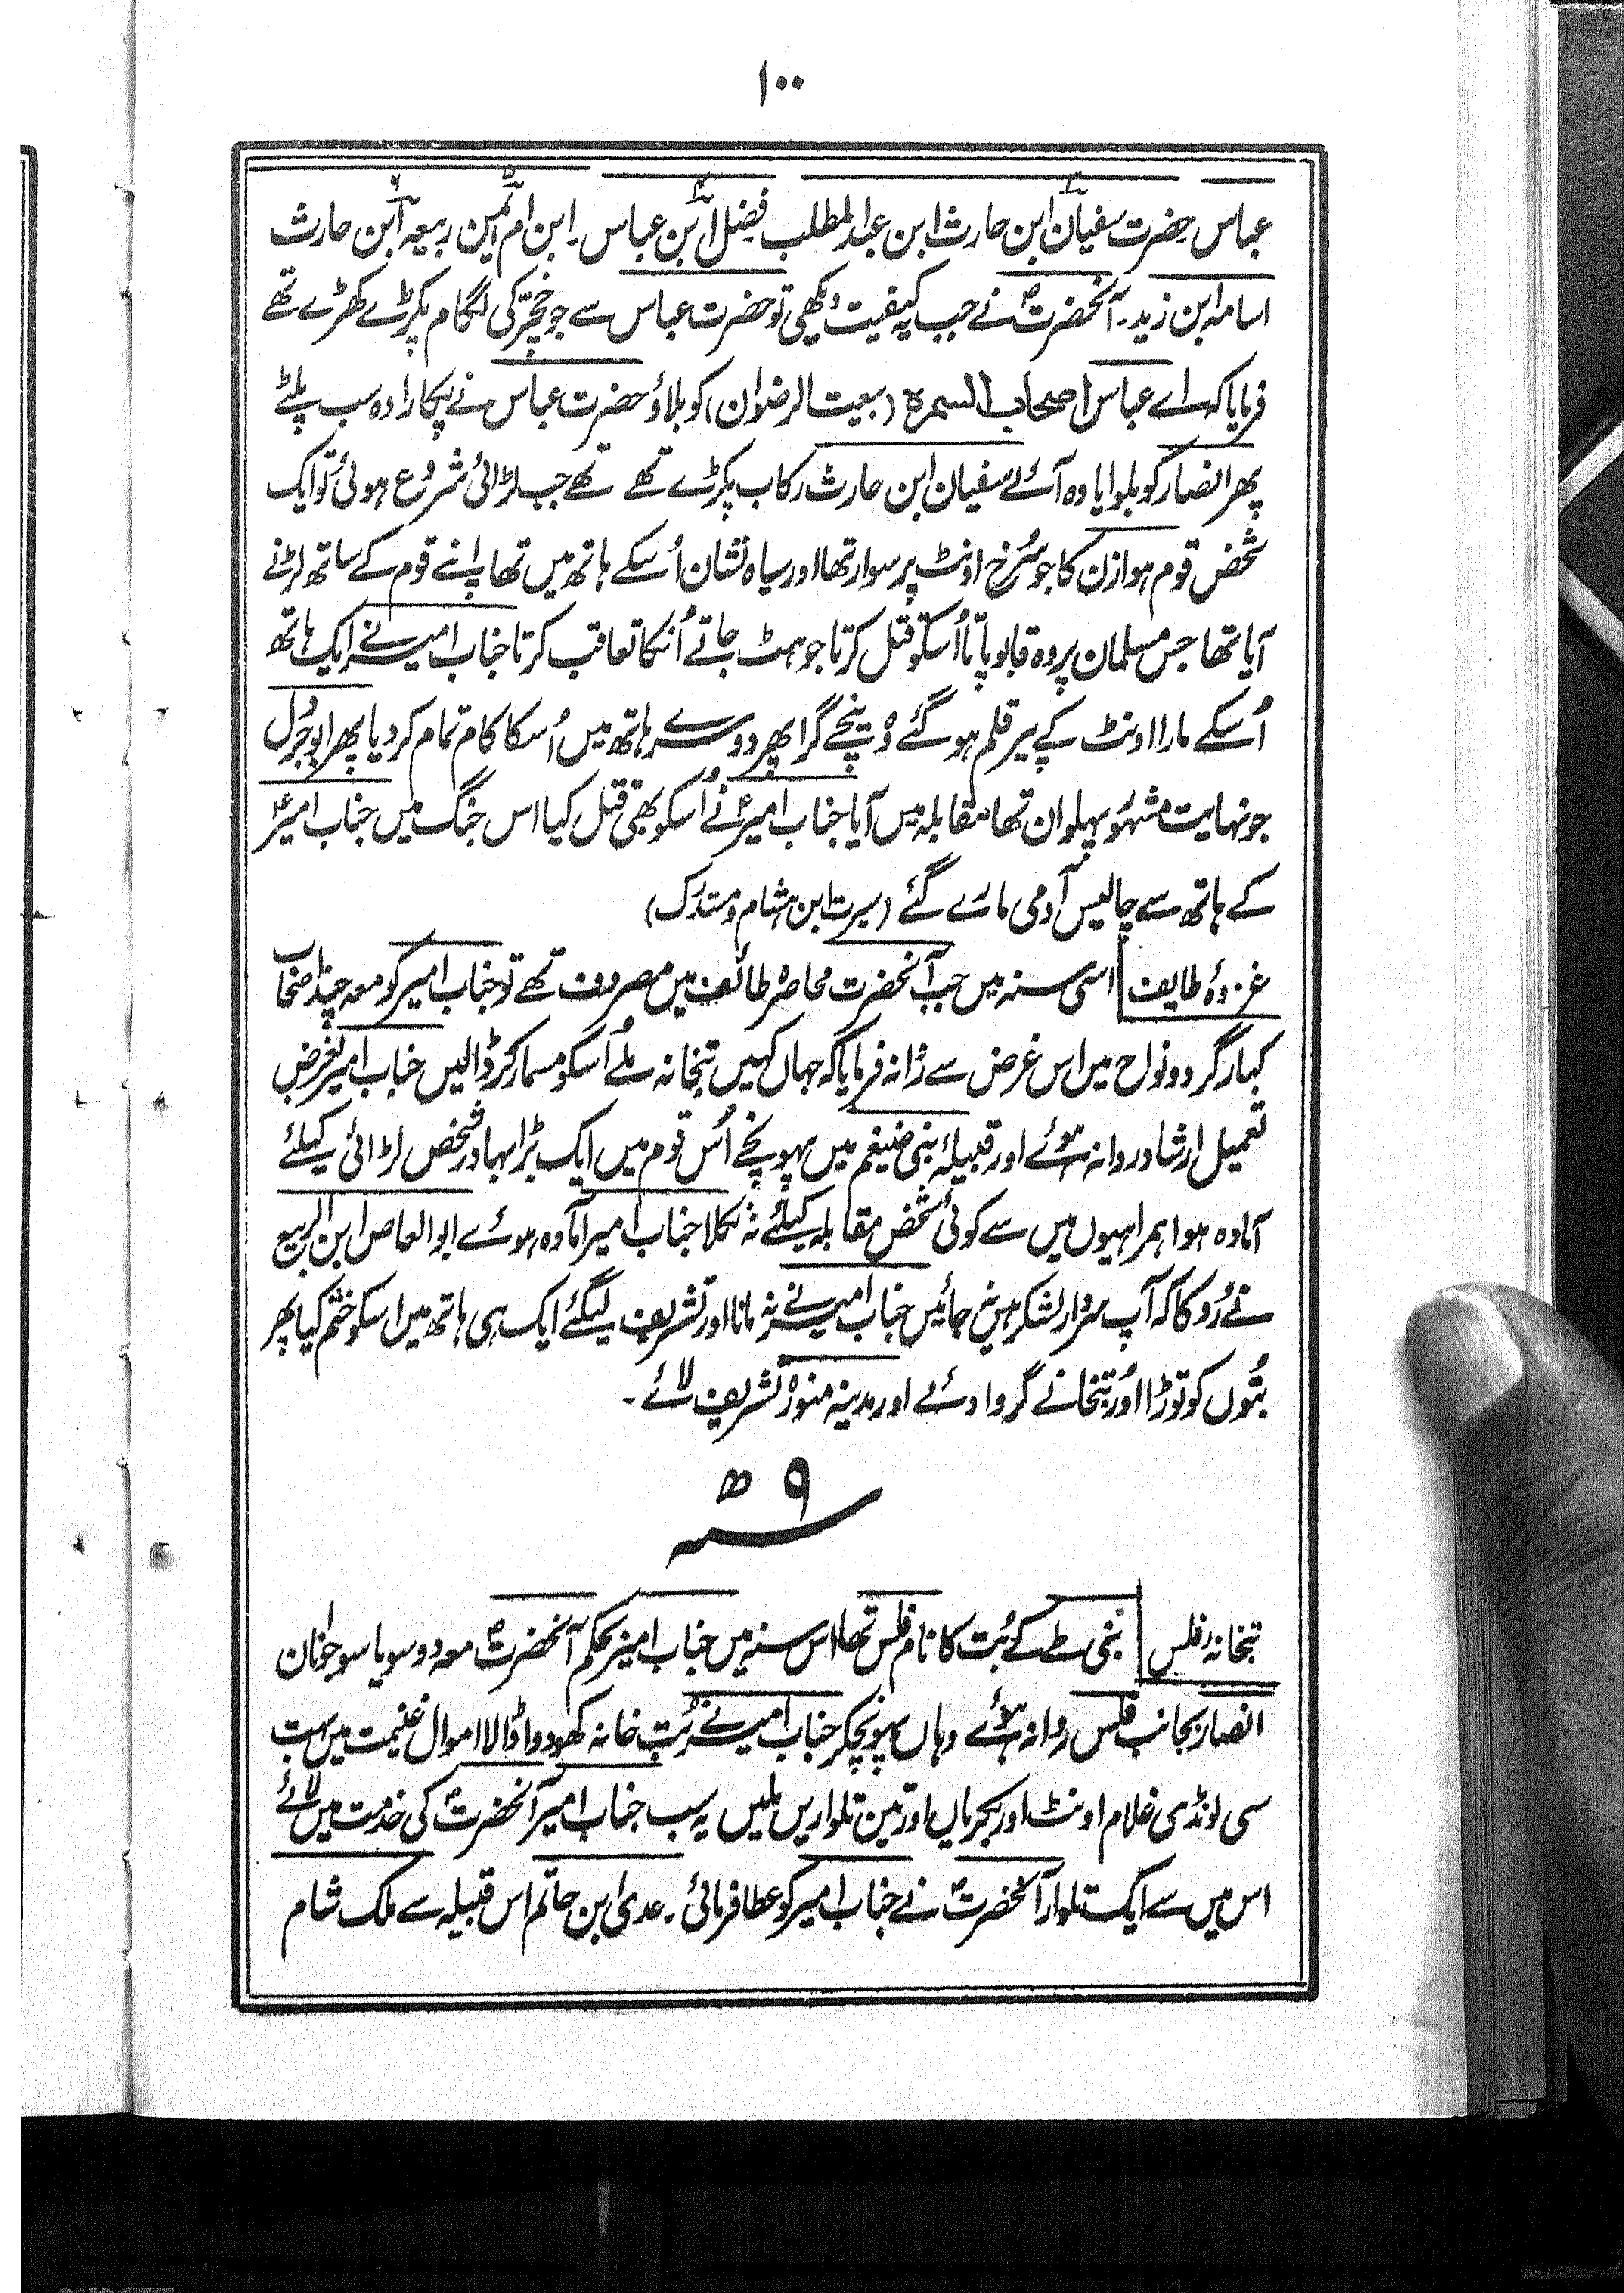 ۱۰۰
عباس حضرت سفیان ابن حارث ابن عبدالمطلب فضل ابن عباس۔ ابن ام ایمن ربیعہ ابن حارث
اسامہ ابن زید۔ آنحضرتؐ نے جب یہ کیفیت دیکھی تو حضرت عباس سے جو خچر کی لگام پکڑے کھڑے تھے
فرمایا کہ اے عباس اصحاب السمرہ (بیعت الرضوان) کو بلاؤ حضرت عباس نے پکارا وہ سب پلٹے
پھر انصار کو بلوایا وہ آئے سفیان ابن حارث رکاب پکڑے تھے تھے جب لڑائی شروع ہوئی تو ایک
شخص قوم ہوازن کا جو سُرخ اونٹ پر سوار تھا اور سیاہ نشان اُسکے ہاتھ میں تھا اپنے قوم کے ساتھ لڑنے
آیا تھا جس مسلمان پر وہ قابو پاتا اُسکو قتل کرتا جو ہٹ جاتے اُنکا تعاقب کرتا جناب امیر نے ایک ہاتھ
اُسکے مارا اونٹ کے پیر قلم ہو گئے وہ نیچے گرا پھر دوسرے ہاتھ میں اُسکا کام تمام کر دیا پھر ابو جرُل
جو نہایت مشہور پہلوان تھا مقابلہ میں آیا جناب امیرؑ نے اُسکو بھی قتل کیا اس جنگ میں جناب امیرؑ
کے ہاتھ سے چالیس آدمی مارے گئے (سیرت ابن ہشام و مستدرک)
غزوۂ طایف اسی سنہ میں جب آنحضرت محاصرۂ طائف میں مصروف تھے تو جناب امیر کو معہ چند اصحاب
کبار گرد و نواح میں اس غرض سے رانہ فرمایا کہ جہاں کہیں بتخانہ ملے اُسکو مسمار کر ڈالیں جناب امیر بغرض
تعمیل ارشاد روانہ ہوئے اور قبیلۂ بنی ضیغم میں پہونچے اُس قوم میں ایک بڑا بہادر شخص لڑائی کیلئے
آمادہ ہوا ہمراہیوں میں سے کوئی شخص مقابلہ کیلئے نہ نکلا جناب امیر آمادہ ہوئے ابو العاص ابن الربیع
نے روکا کہ آپ سردار لشکر ہیں نہ جائیں جناب امیر نے نہ مانا اور تشریف لیگئے ایک ہی ہاتھ میں اسکو ختم کیا پھر
بُتوں کو توڑا اور بتخانے گروا دئے اور مدینہ منورہ تشریف لائے۔
سنہ ۹ ھ
بتخانہ فلس بنی طے کے بُت کا نام فلس تھا اس سنہ میں جناب امیر بحکم آنحضرتؐ معہ دو سو یا سو جوانان
انصار بجانب فلس روانہ ہوئے وہاں پہونچکر جناب امیر نے بُت خانہ کھودوا ڈالا اموال غنیمت میں بہت
سی لونڈی غلام اونٹ اور بکریاں اور تین تلواریں ملیں یہ سب جناب امیر آنحضرتؐ کی خدمت میں لائے
اس میں سے ایک تلوار آنحضرتؐ نے جناب امیر کو عطا فرمائی۔ عدی ابن حاتم اس قبیلہ سے ملک شام